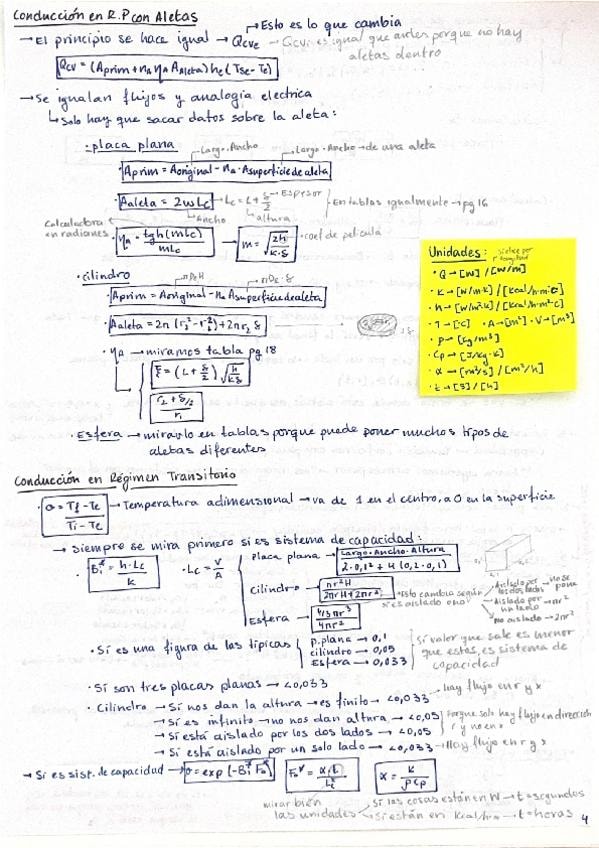 Conducción en R.P con Aletas
→ Esto es lo que cambia
→ El principio se hace igual → Qcve → Qcvi es igual que antes porque no hay
aletas dentro
Qcv = (Aprim + nA ηA Aaleta) he (Tse - Te)
→ Se igualan flujos y analogía electrica
↳ Solo hay que sacar datos sobre la aleta:
· placa plana:
Largo·Ancho
Largo·Ancho → de una aleta
· Aprim = Aoriginal - nA Asuperficie de aleta
· Aaleta = 2wLc
→ Lc = L + δ/2
Espesor
Ancho
altura
En tablas igualmente → pg 16
Calculadora
en radianes
· ηA = tgh(mLc)/mLc
→ m = √(2h/k·δ)
→ coef de película
· cilindro
· Aprim = Aoriginal - nA Asuperficie de aleta
· Aaleta = 2π (r₂² - r₁²) + 2π r₂ δ
· ηA → miramos tabla pg 18
ξ = (L + δ/2) √(h/kδ)
(r₂ + δ/2)/r₁
· Esfera → mirarlo en tablas porque puede poner muchos tipos de
aletas diferentes
Unidades:
· Q → [W] / [W/m]
· K → [W/m·k] / [Kcal/h·m·C]
· h → [W/m²·k] / [Kcal/h·m²·C]
· T → [C] · A → [m²] · V → [m³]
· ρ → [kg/m³]
· Cp → [J/kg·K]
· α → [m²/s] / [m²/h]
· t → [s] / [h]
Conducción en Régimen Transitorio
· θ = (Tf - Te)/(Ti - Te) → Temperatura adimensional → va de 1 en el centro, a 0 en la superficie
→ siempre se mira primero si es sistema de capacidad:
Bi* = h·Lc/k
· Lc = V/A
Placa plana → Largo·Ancho·Altura / 2·0,1² + 4(0,2·0,1)
Cilindro → πr²H / 2πrH + 2πr²
→ Esto cambia según
si es aislado o no
Aislado por los dos lados → no se pone
→ aislado por un lado → πr²
No aislado → 2πr²
Esfera → 4/3πr³ / 4πr²
· Si es una figura de las típicas
P.plana → 0,1
cilindro → 0,05
Esfera → 0,033
Si valor que sale es menor
que estos, es sistema de
capacidad
· Si son tres placas planas → <0,033
· Cilindro → Si nos dan la altura → es finito → <0,033 → hay flujo en r y x
→ Si es infinito → no nos dan altura → <0,05
Porque solo hay flujo en dirección
r y no en x
→ Si está aislado por los dos lados → <0,05
→ Si está aislado por un solo lado → <0,033 → Hay flujo en r y x
→ Si es sist. de capacidad → θ = exp (-Bi* Fo*)
Fo* = α·t/Lc²
α = K/ρCp
mirar bien
las unidades
→ Si las cosas están en W → t = segundos
→ Si están en Kcal/h·m → t = horas
4